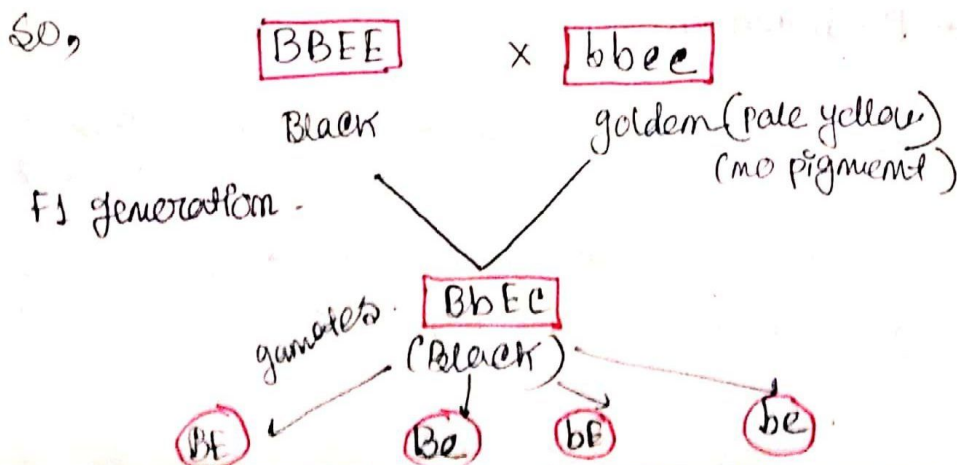 So,
BBEE × bbee
Black goldem (pale yellow)
(mo pigment)
F1 generation.
BbEe
gamates.
(Black)
BE Be bE be